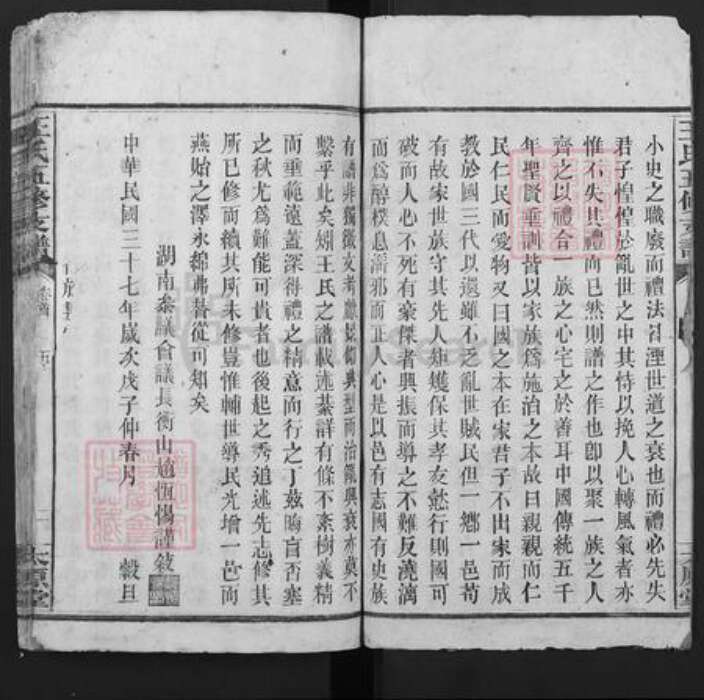 小史之職廢而禮法台湮世道之衰也而禮必先失
君子惶惶於亂世之中其恃以挽人心轉風氣者亦
惟不失其禮而已然則譜之作也卽以聚一族之人
齊之以禮合一族之心宅之於善耳中國傳統五千
年聖賢垂訓皆以家族爲施治之本故曰親親而仁
民仁民而愛物又曰國之本在家君子不出家而成
教於國三代以還雖不乏亂世賊民但一鄉一邑苟
有故家世族守其先人矩矱保其孝友懿行則國可
破而人心不死有豪傑者興振而導之不難反澆漓
而爲醇樸息淫邪而正人心是以邑有志國有史族
有譜非獨徵文考獻於倫與型而治亂與衰亦莫不
繫乎此矣矧王氏之譜載述綦詳有條不紊樹義精
而垂範遠蓋深得禮之精意而行之丁茲晦盲否塞
之秋尤爲難能可貴者也後起之秀追述先志修其
所已修而續其所未修豈惟輔世導民光增一邑而
燕始之澤永綿弗替從可知矣
湖南參議會議長衡山趙恆惕謹敍
中華民國三十七年歲次戊子仲春月 穀旦
王氏五修支譜
太原堂